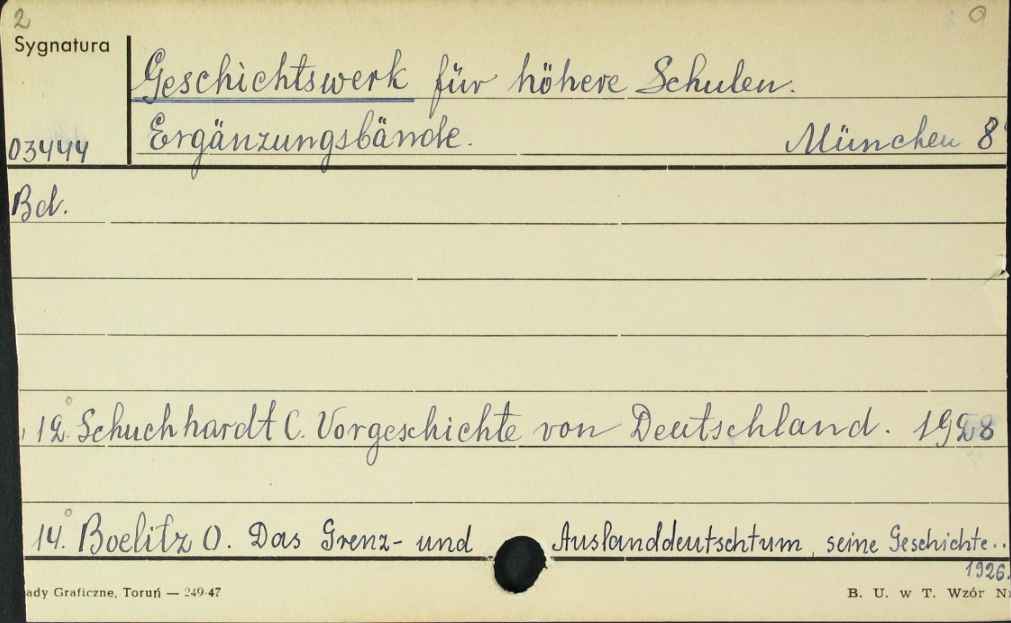 2 0
Sygnatura
Geschichtswerk für höhere Schulen.
03444 Ergänzungsbände. München 8°
Bd.
12. Schuchhardt C. Vorgeschichte von Deutschland. 1928
14. Boelitz O. Das Grenz- und Auslanddeutschtum, seine Geschichte..
1926.
ady Graficzne, Toruń — 249-47 B. U. w T. Wzór Nr